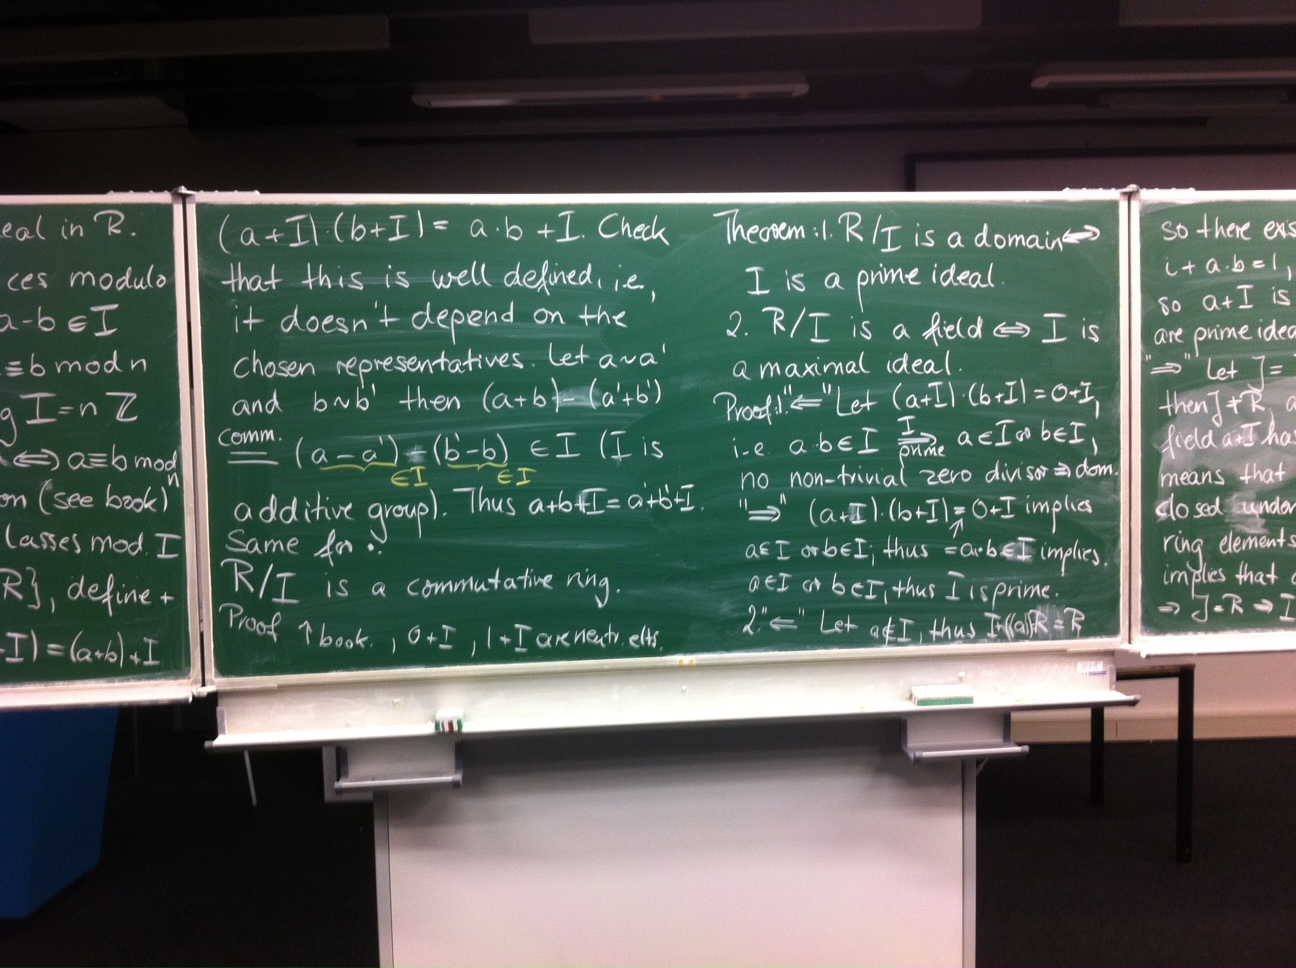 eal in R.
ces modulo
a-b ∈ I
≡ b mod n
g I = n ℤ
⟺ a ≡ b mod n
on (see book)
lasses mod. I
R}, define +
I) = (a+b) + I
(a+I)·(b+I) = a·b + I. Check
that this is well defined, i.e,
it doesn't depend on the
chosen representatives. Let a~a'
and b~b' then (a+b) - (a'+b')
comm.
= (a-a') + (b'-b) ∈ I (I is
∈I ∈I
additive group). Thus a+b+I = a'+b'+I.
Same for ·.
R/I is a commutative ring.
Proof ↑ book., 0+I, 1+I are neutr. elts.
Theorem: 1. R/I is a domain ⟺
I is a prime ideal.
2. R/I is a field ⟺ I is
a maximal ideal.
Proof: 1. "⇐" Let (a+I)·(b+I) = 0+I,
i.e. a·b ∈ I ⇒ a ∈ I or b ∈ I,
I prime
no non-trivial zero divisor ⇒ dom.
"⇒" (a+I)·(b+I) = 0+I implies
a∈I or b∈I, thus = a·b ∈ I implies.
a∈I or b∈I, thus I is prime.
2. "⇐" Let a∉I, thus I+(a)R = R
so there exis
i + a·b = 1,
so a+I is
are prime idea
"⇒" Let J =
then J ≠ R, a
field a+I has
means that
closed under
ring elements
implies that
⇒ J=R ⇒ I